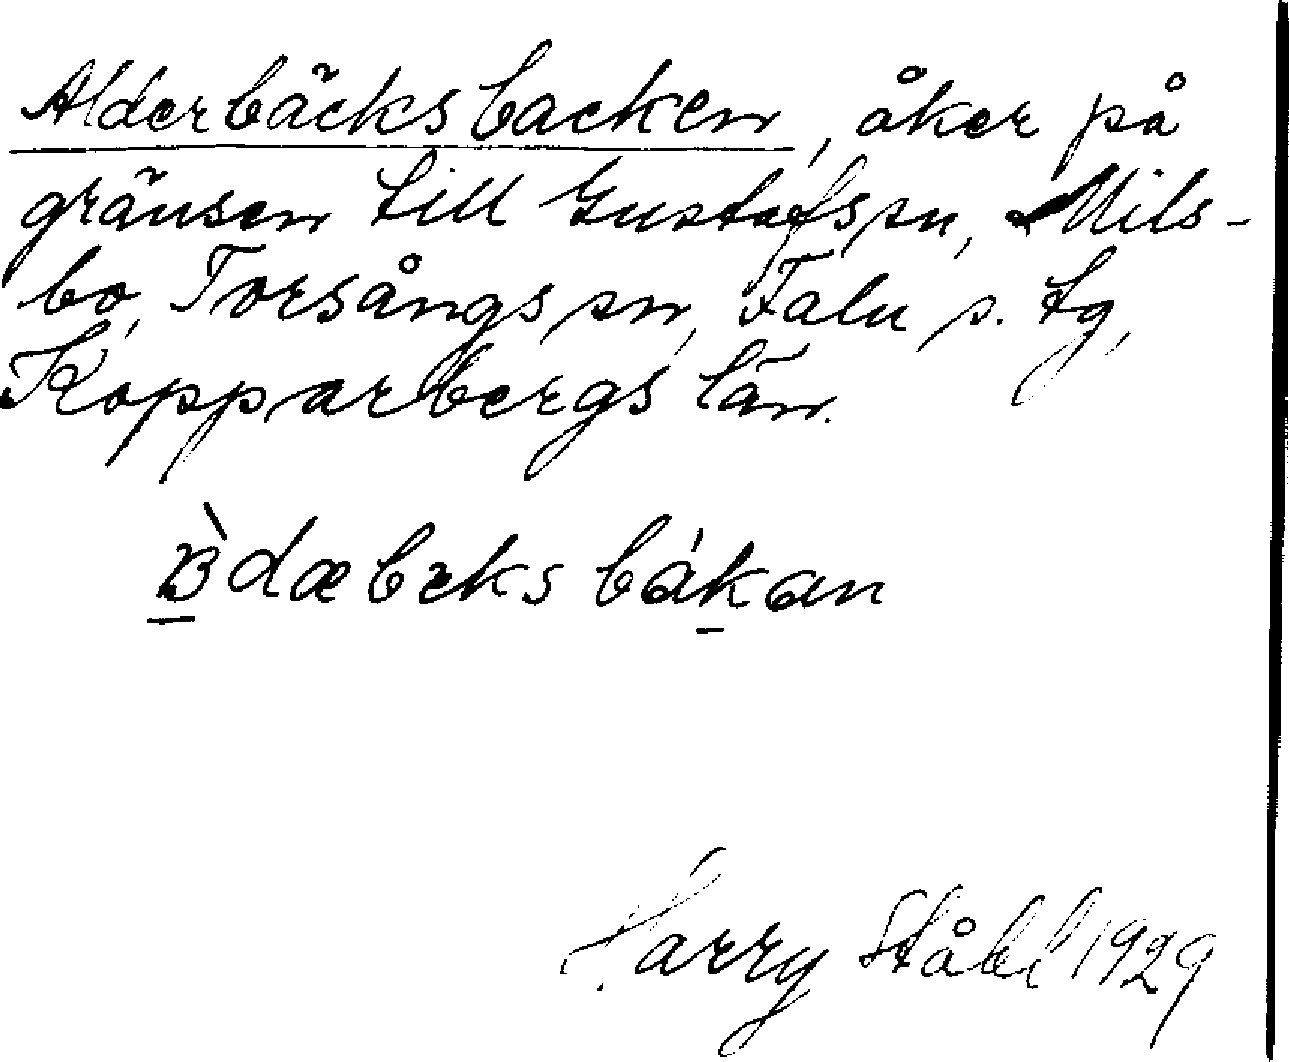 Alderbäcksbacken, åker på
gränsen till Gustafs sn, Mils-
bo, Torsångs sn, Falu s. tg,
Kopparbergs län.
Harry Ståhl 1929